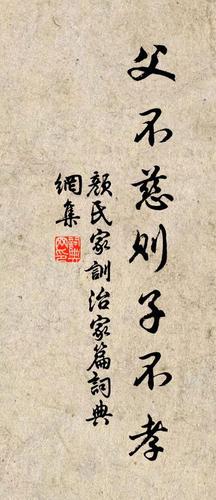 父不慈则子不孝
顏氏家訓治家篇詞典
網集